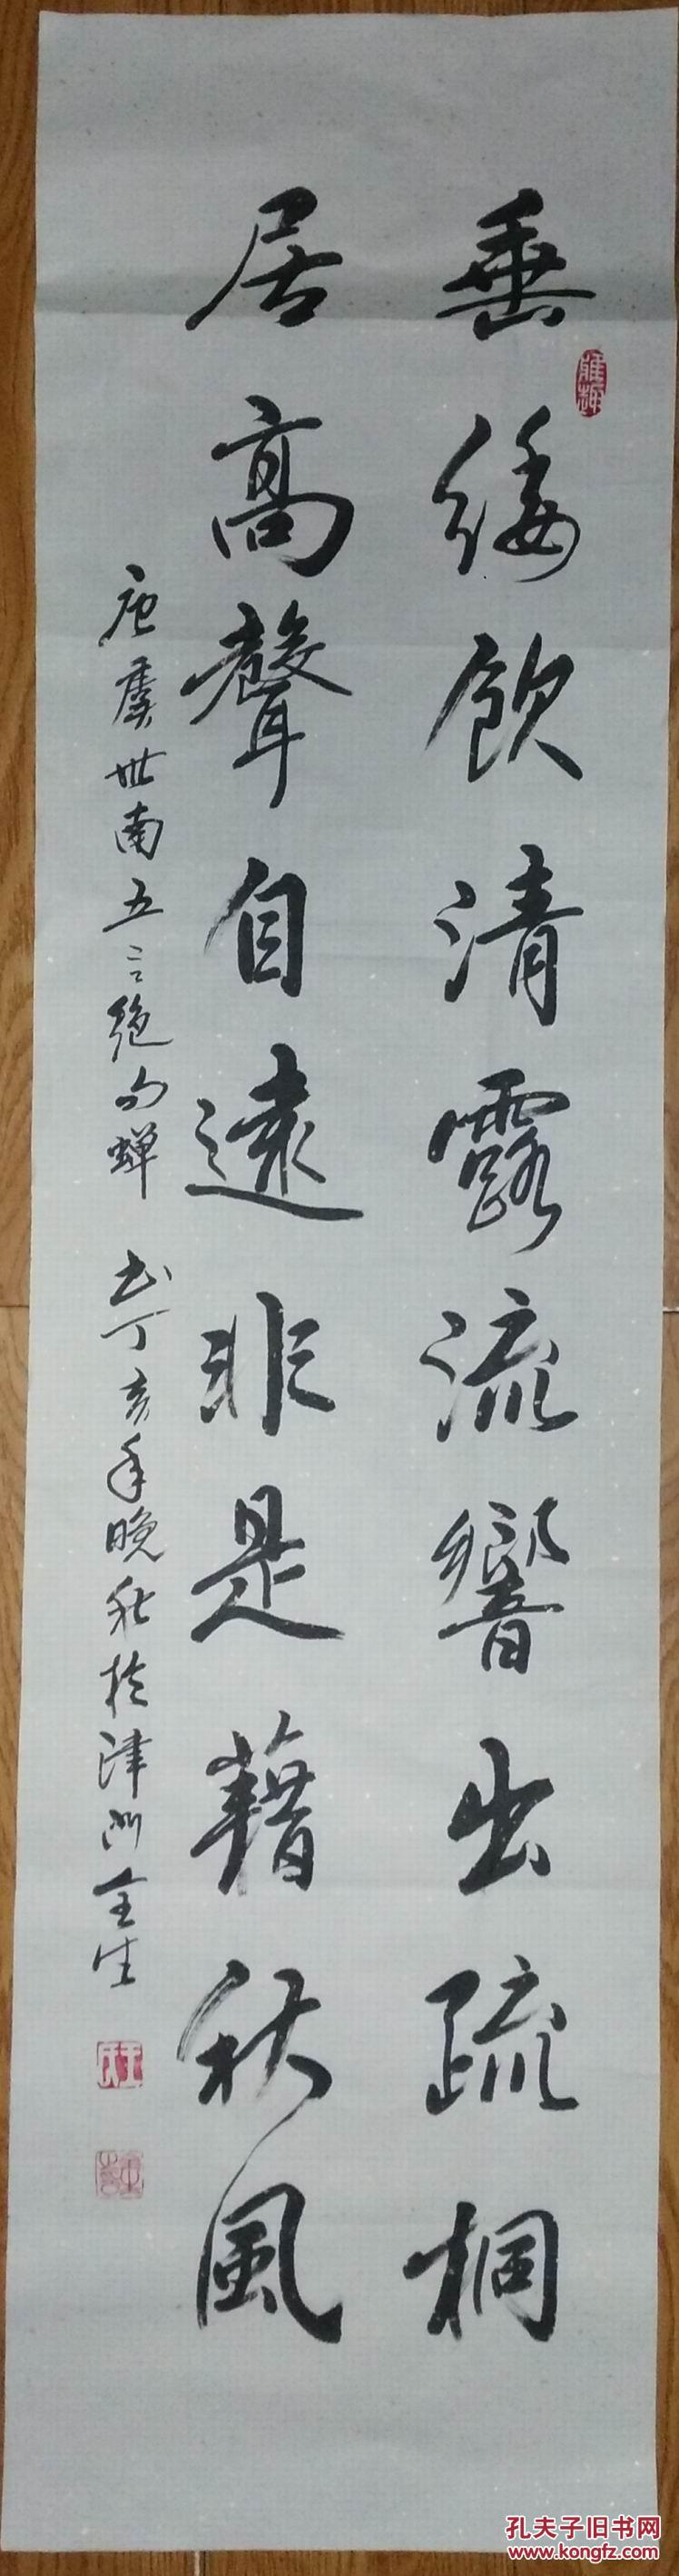 垂緌飲清露流響出疏桐
居高聲自遠非是藉秋風
唐虞世南五言絕句蟬 書丁亥年晚秋於津門全生
雅趣
孔夫子旧书网
www.kongfz.com